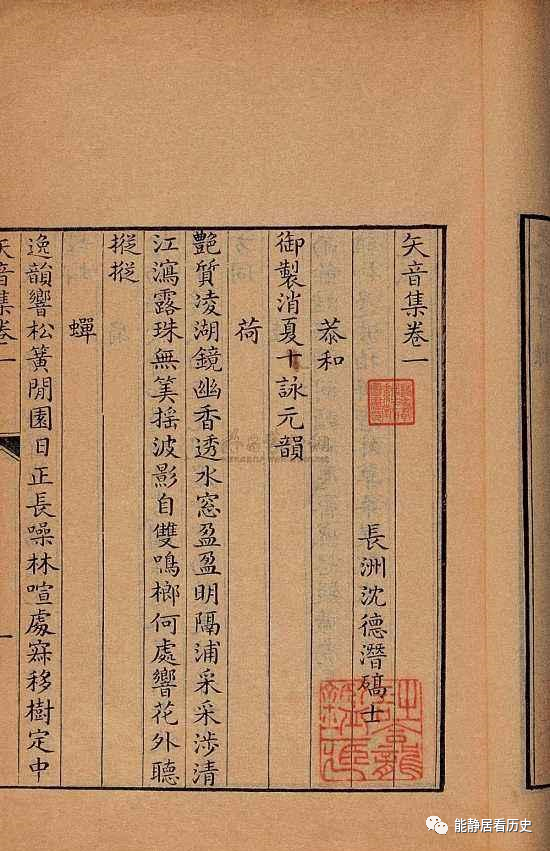 矢音集卷一
長洲沈德潛碻士
恭和
御製消夏十詠元韻
荷
艷質淩湖鏡幽香透水窓盈盈明隔浦采采涉清
江瀉露珠無筭摇波影自雙鳴榔何處響花外聽
摐摐
蟬
逸韻響松簧閒園日正長噪林喧處寂移樹定中
矢音集卷一
一
能静居看历史